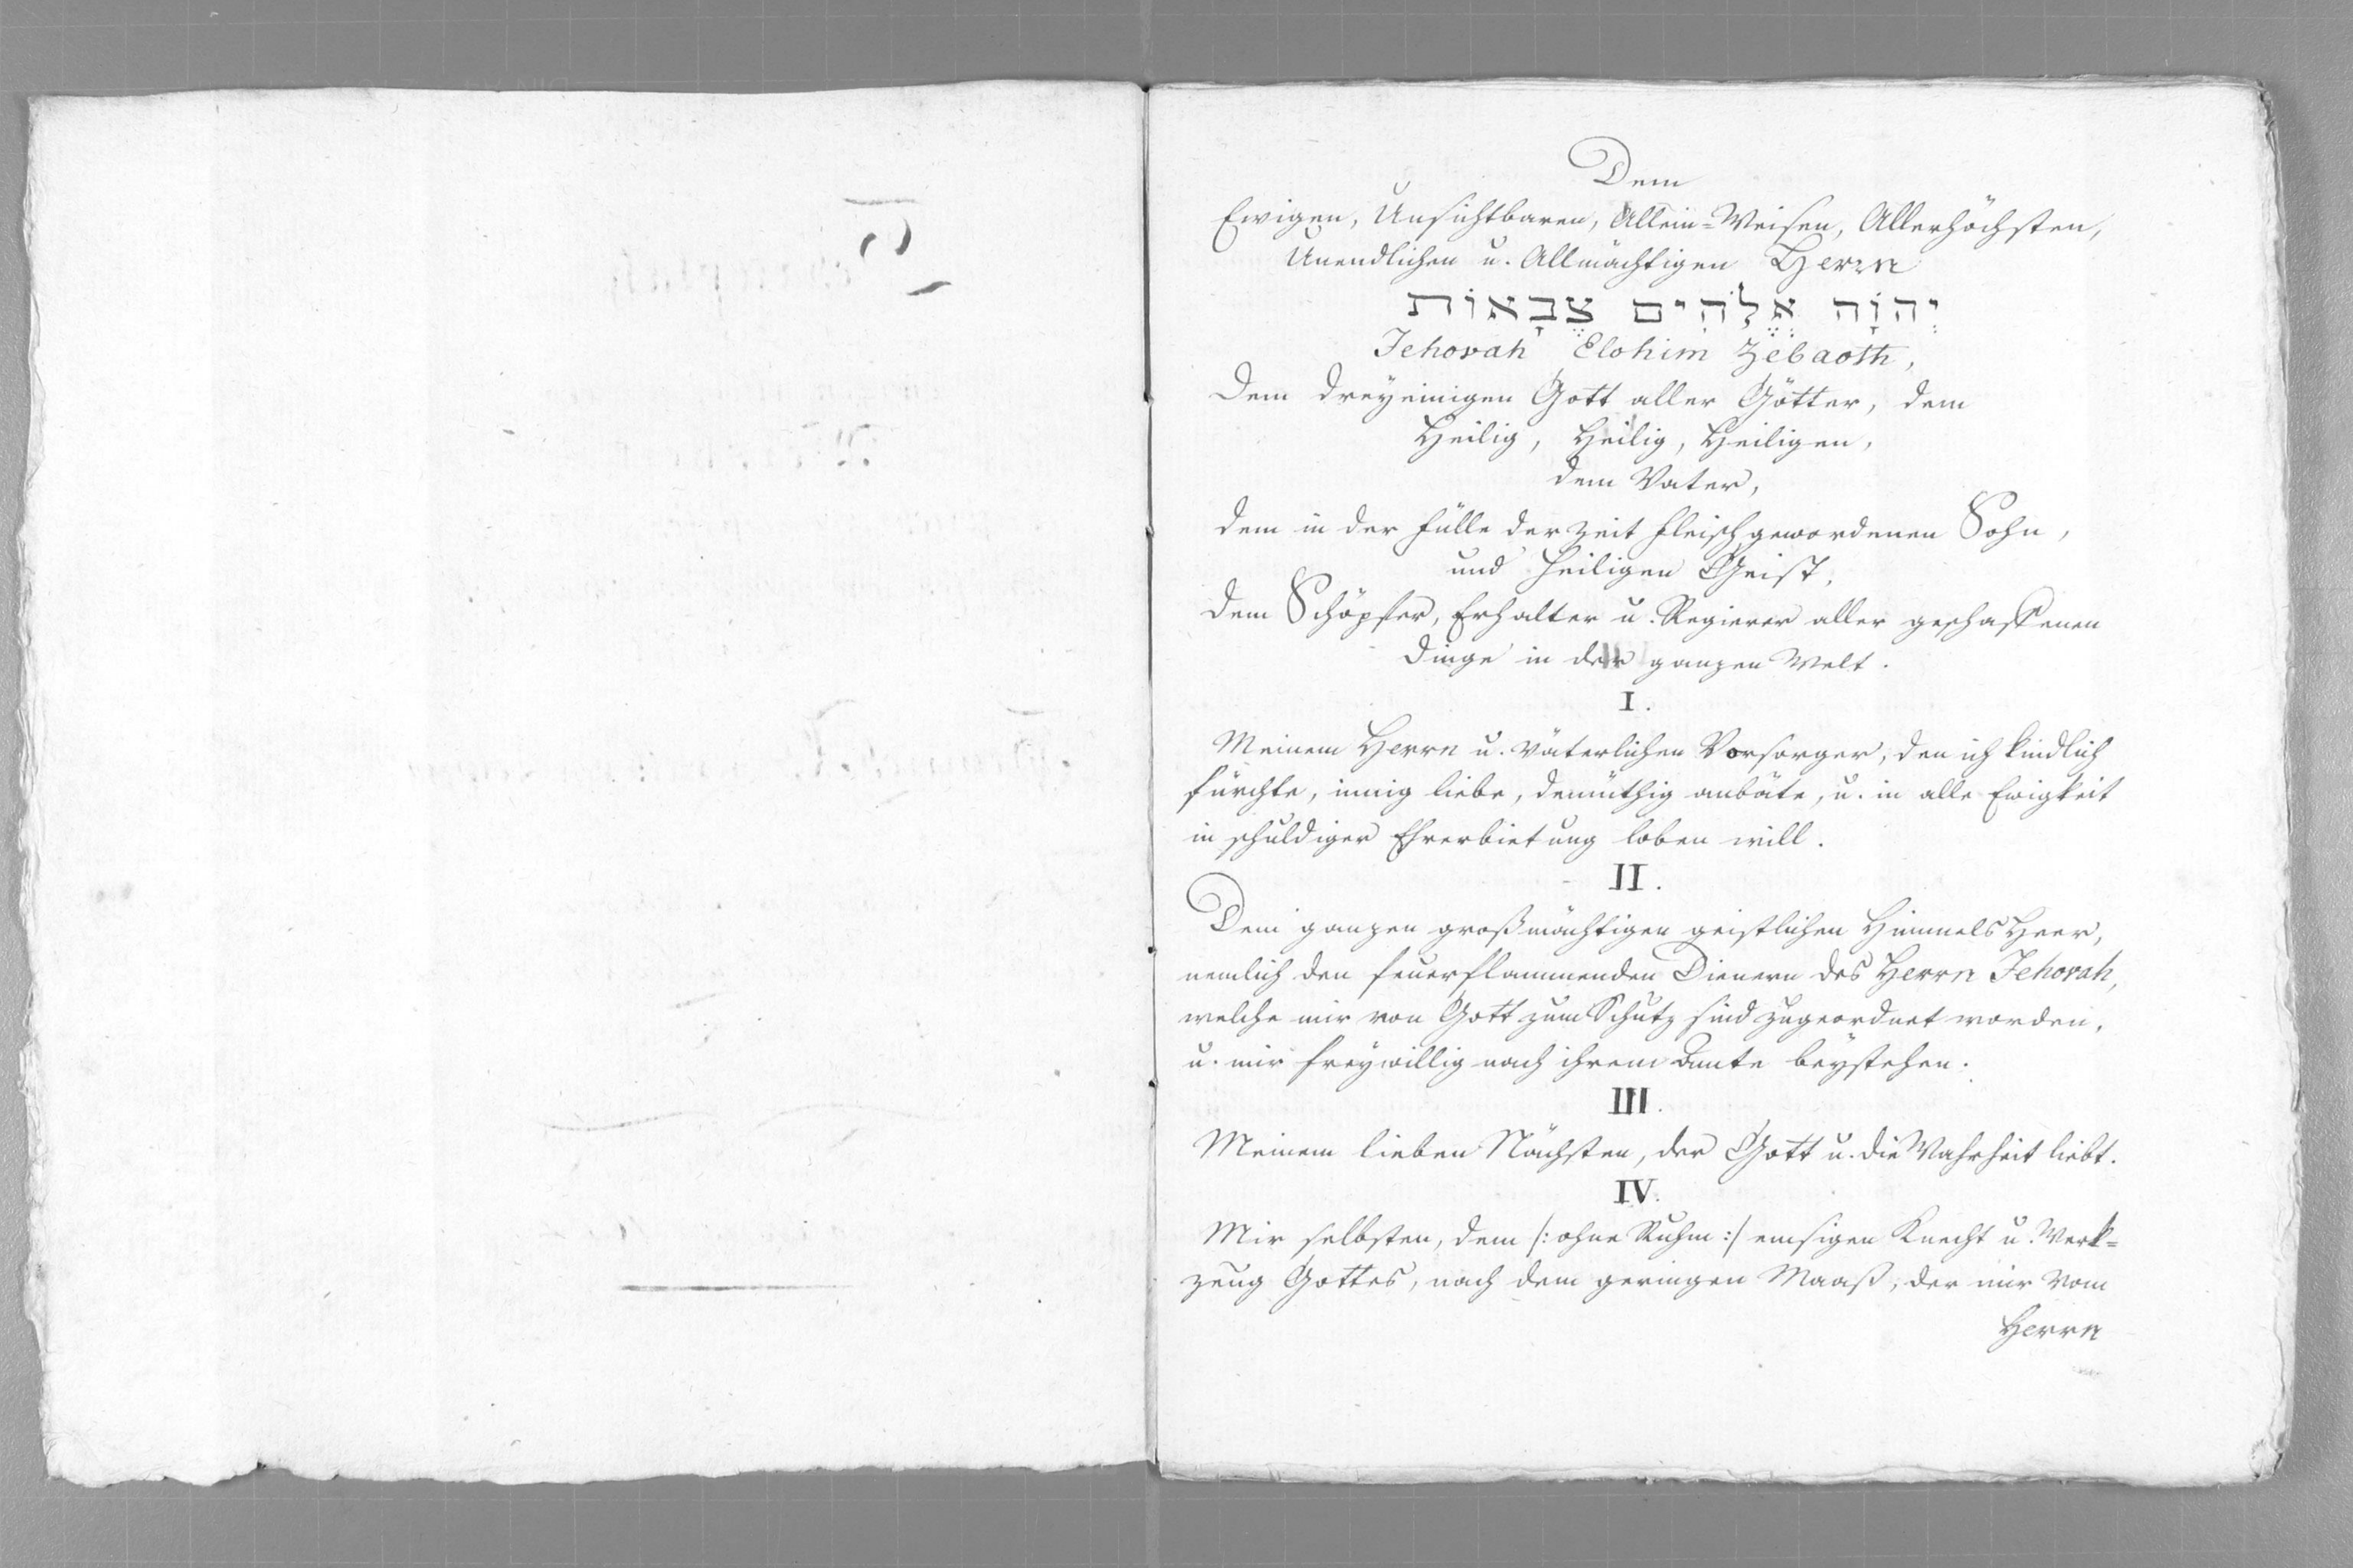 Dem
Ewigen, Unsichtbaren, Allein-Weisen, Allerhöchsten,
Unendlichen u. Allmächtigen Herrn
יְהוָֹה אֱלֹהִים צֱבָאוֹת
Jehovah Elohim Zebaoth,
Dem dreyeinigen Gott aller Götter, dem
Heilig, Heilig, Heiligen,
dem Vater,
dem in der Fülle der Zeit Fleischgewordenen Sohn,
und Heiligen Geist,
dem Schöpfer, Erhalter u. Regierer aller geschaffenen
Dinge in der ganzen Welt.
I.
Meinem Herrn u. väterlichen Vorsorger, den ich kindlich
fürchte, innig liebe, demüthig anbäte, u. in alle Ewigkeit
in schuldiger Ehrerbietung loben will.
II.
Dem ganzen großmächtigen geistlichen Himmels Heer,
nemlich den feuerflammenden Dienern des Herrn Jehovah,
welche mir von Gott zum Schutz sind zugeordnet worden,
u. mir freywillig nach ihrem Amte beystehen.
III.
Meinem lieben Nächsten, der Gott u. die Wahrheit liebt.
IV.
Mir selbsten, dem /: ohne Ruhm :/ emsigen Knecht u. Werk=
zeug Gottes, nach dem geringen Maaß, der mir vom
Herrn